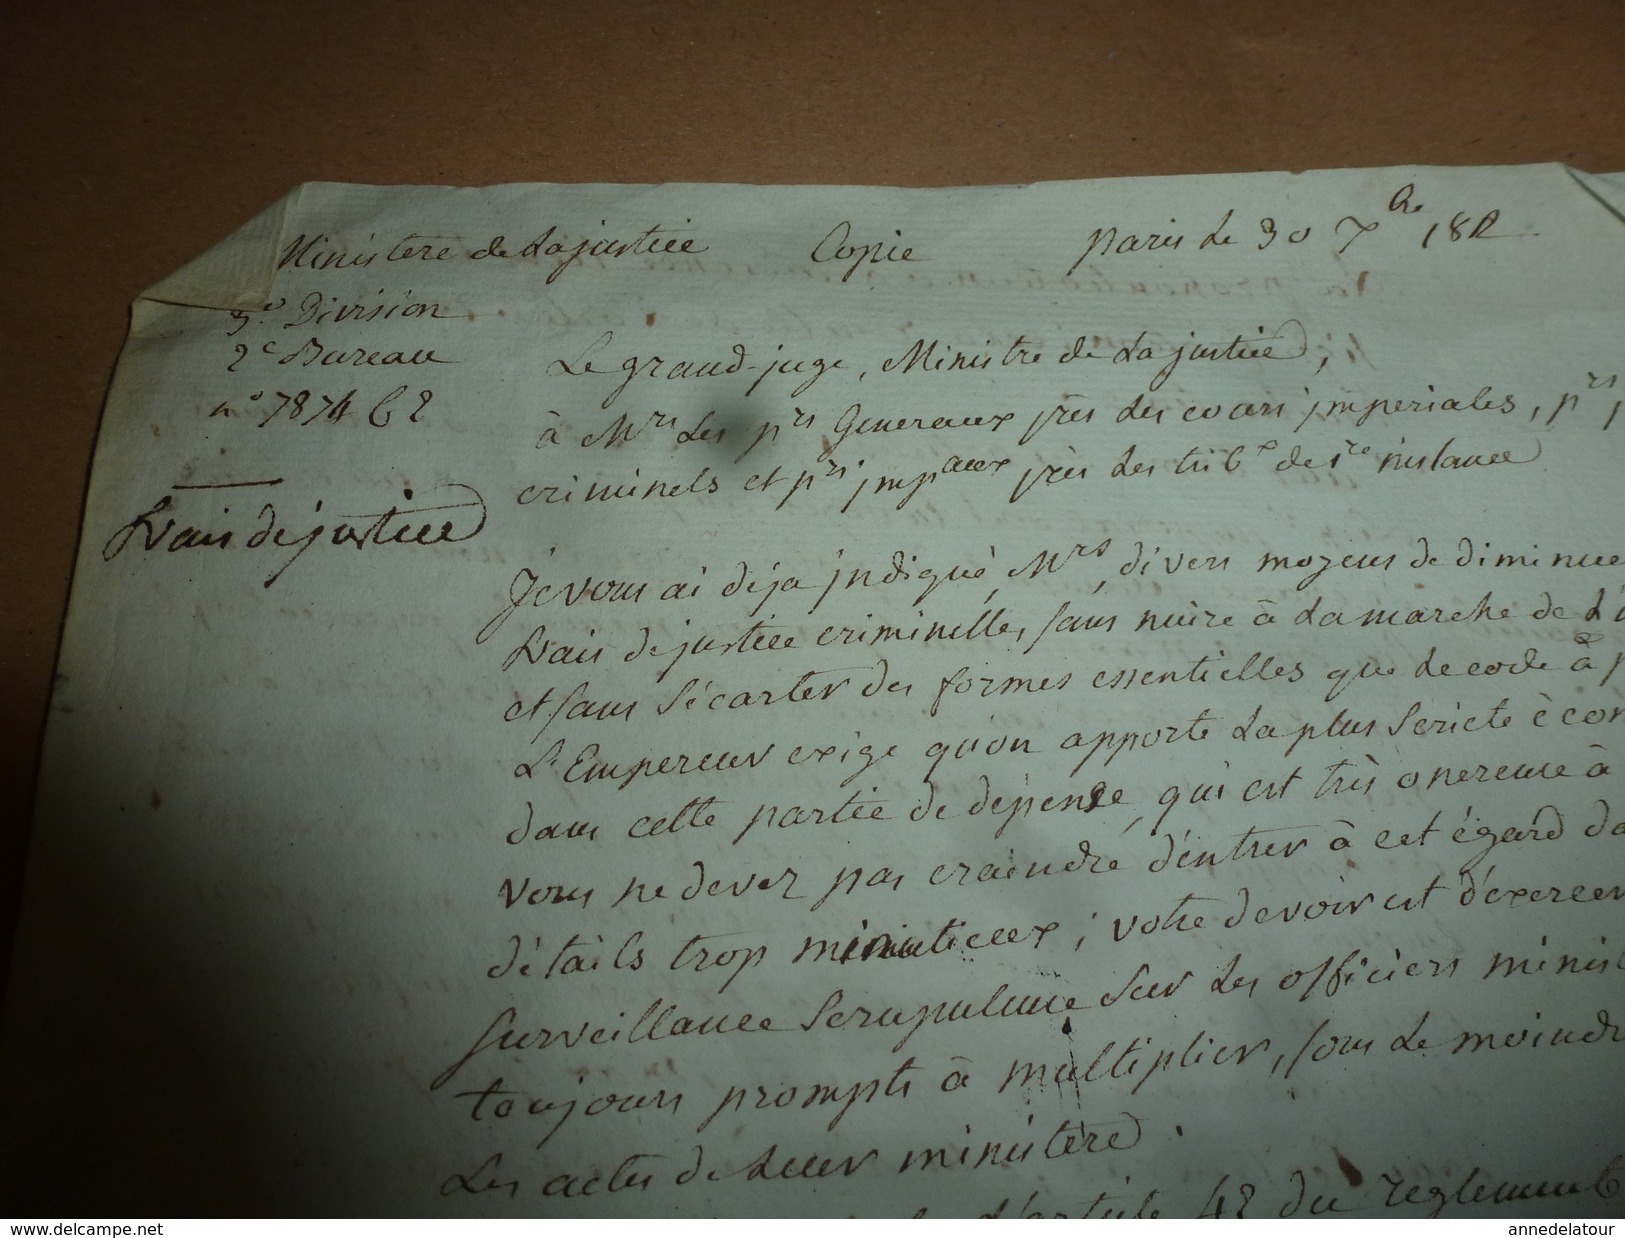 Ministère de La justice Copie Paris Le 30 7bre 1812
3e Division
2e Bureau
n° 7874 C 2
Le grand-juge, Ministre de La justice,
à Mrs Les prs Generaux près Les cours imperiales, prs
criminels et prs impaux près Les tribx de 1re instance
frais de justice
Je vous ai déja indiqué, Mrs, divers moyens de diminue
frais de justice criminelle, sans nuire à La marche de L'
et sans s'écarter des formes essentielles que Le code à
L'Empereur exige qu'on apporte La plus Stricte écon
dans cette partie de dépense, qui est très onereuse à
vous ne devez pas craindre d'entrer à cet égard da
détails trop minutieux; votre devoir est d'exercer
surveillance Scrupuleuse Sur Les officiers minist
toujours prompts à multiplier, sous Le moindr
Les actes de Leur ministère.
L'article 42 du reglement
www.delcampe.net
annedelatour